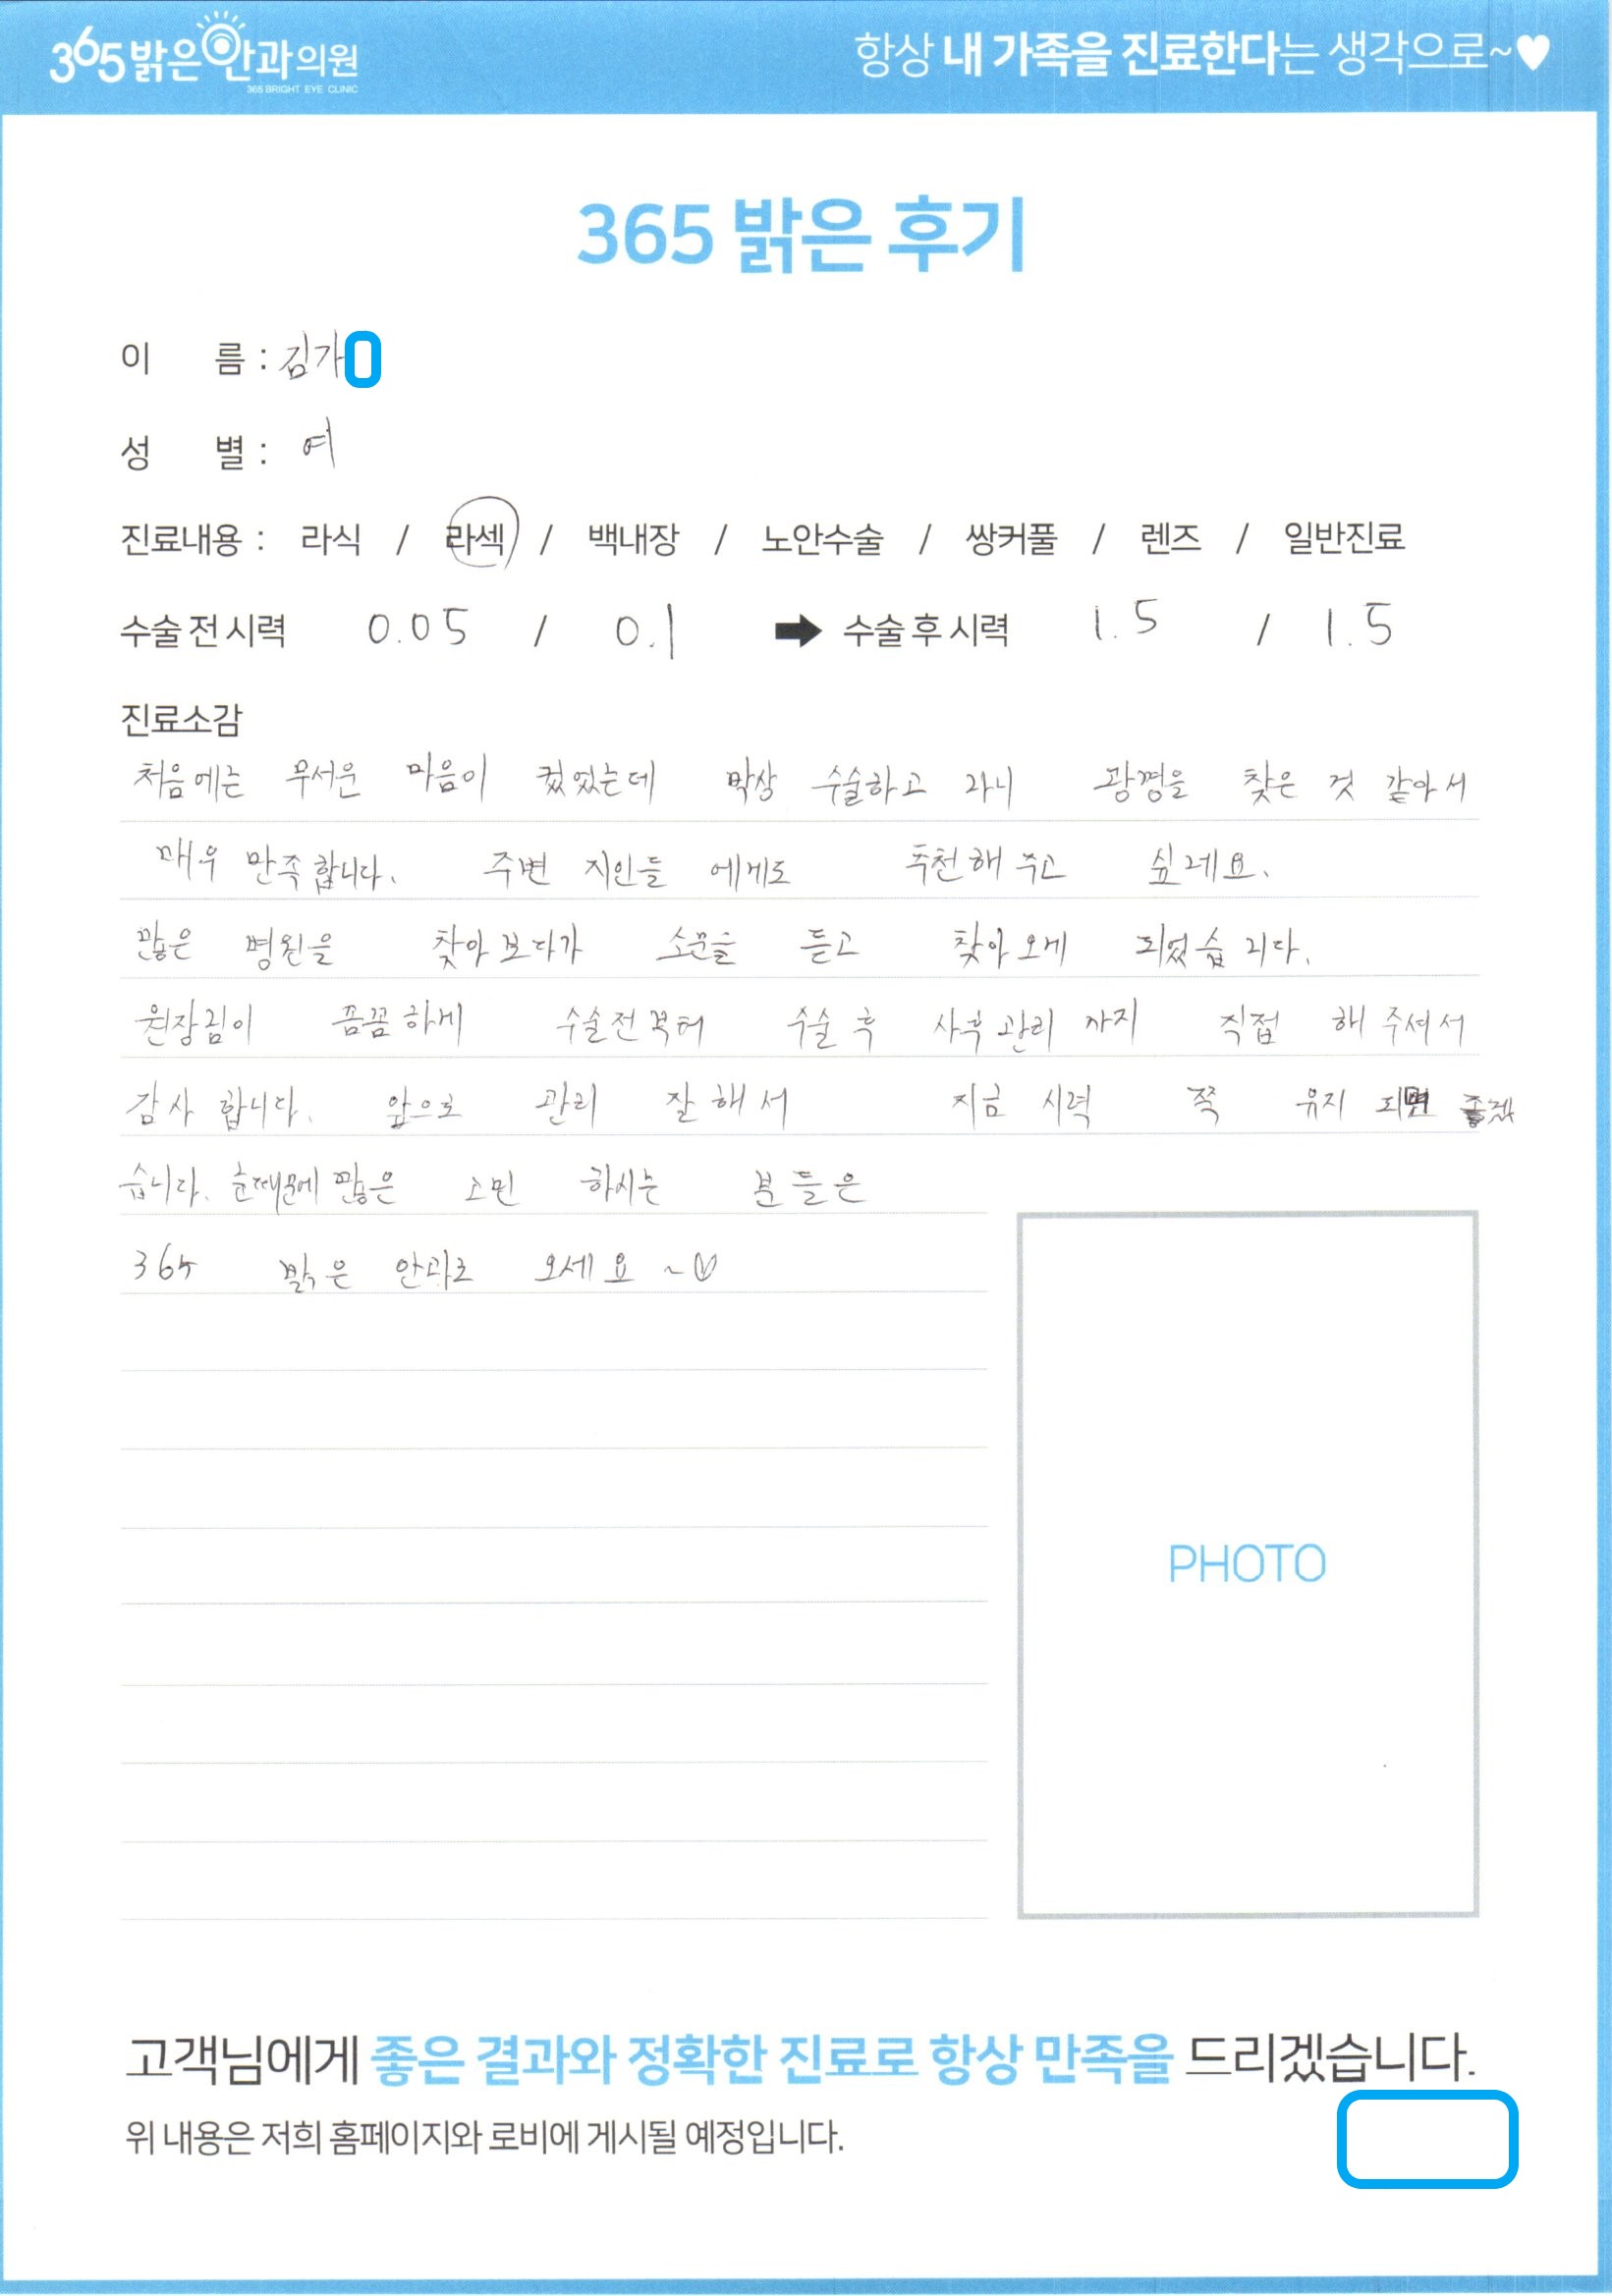 365 밝은안과의원
365 BRIGHT EYE CLINIC
항상 내 가족을 진료한다는 생각으로~♥
365 밝은 후기
이 름 : 김가
성 별 : 여
진료내용 : 라식 / 라섹 / 백내장 / 노안수술 / 쌍커풀 / 렌즈 / 일반진료
수술 전 시력 0.05 / 0.1 ➡ 수술 후 시력 1.5 / 1.5
진료소감
처음에는 무서운 마음이 컸었는데 막상 수술하고 나니 광명을 찾은 것 같아서
매우 만족합니다. 주변 지인들 에게도 추천해 주고 싶네요.
많은 병원을 찾아보다가 소문을 듣고 찾아오게 되었습니다.
원장님이 꼼꼼하게 수술전부터 수술 후 사후관리 까지 직접 해 주셔서
감사 합니다. 앞으로 관리 잘해서 지금 시력 쭉 유지 되면 좋겠
습니다. 눈때문에 많은 고민 하시는 분들은
365 밝은 안과로 오세요 ~♡
PHOTO
고객님에게 좋은 결과와 정확한 진료로 항상 만족을 드리겠습니다.
위 내용은 저희 홈페이지와 로비에 게시될 예정입니다.